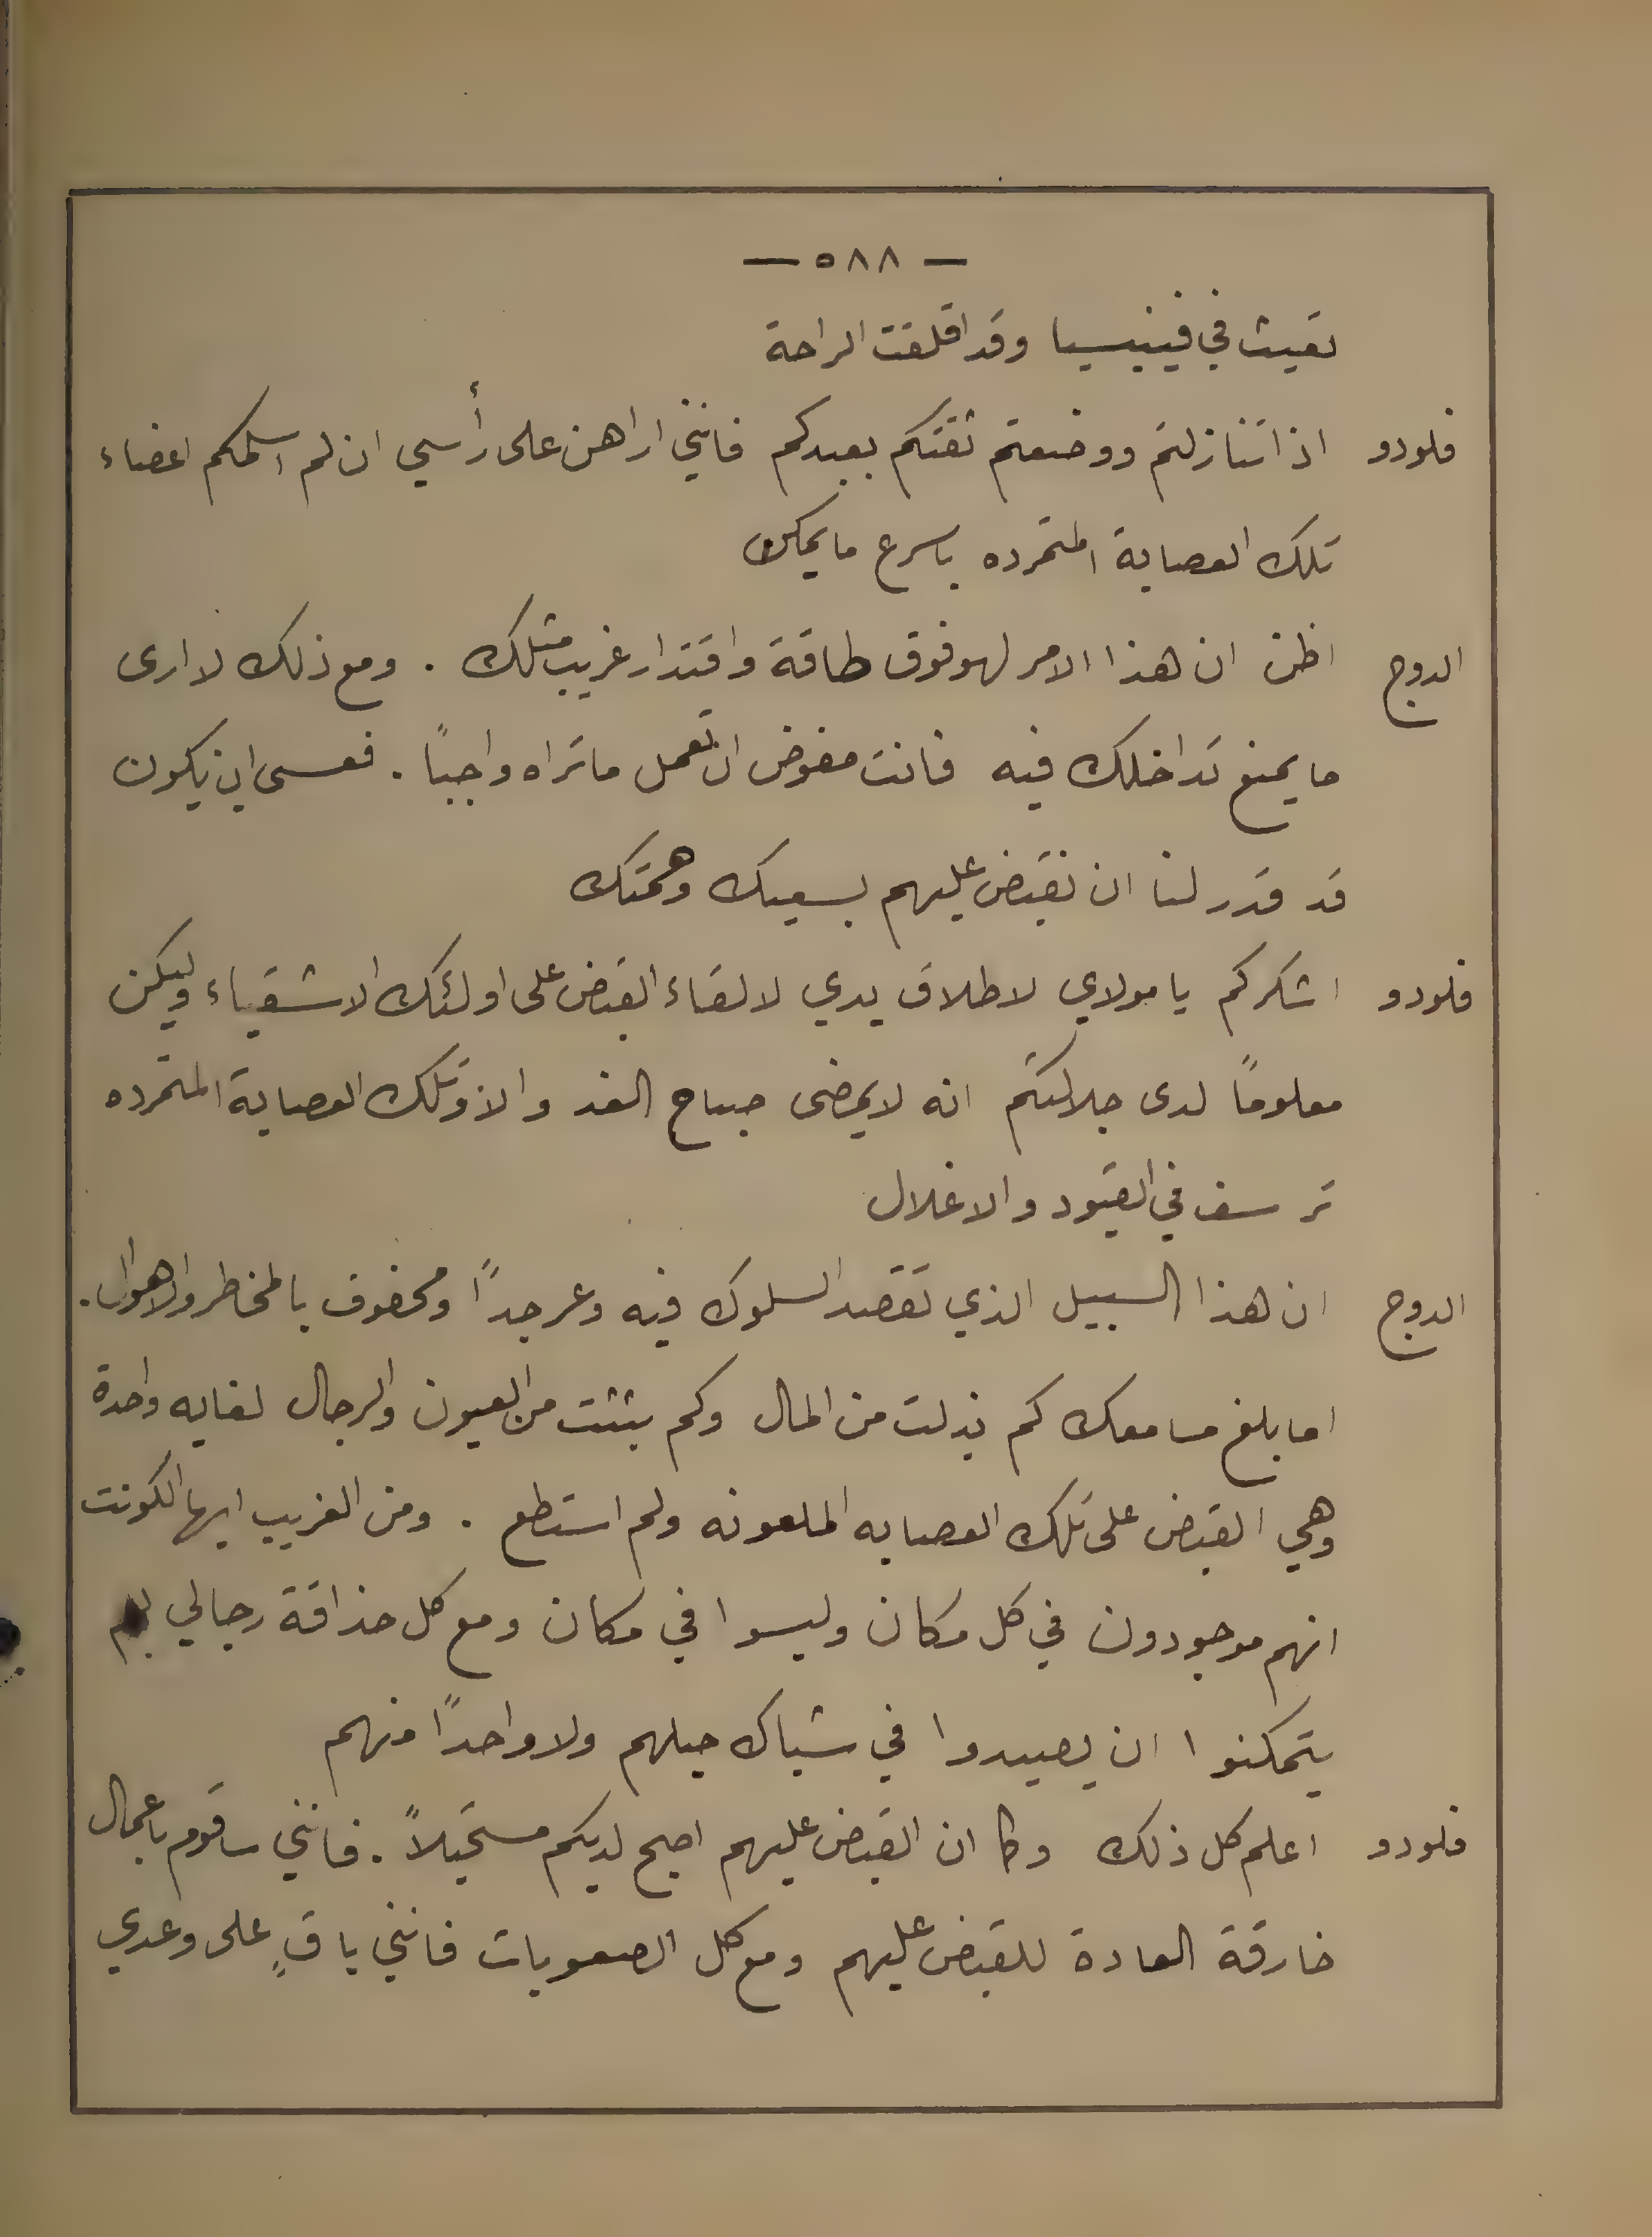 — ٥٨٨ —
تعيث في فينيسيا وقد اقلقت الراحة
فلودو اذا تنازلتم ووضعتم ثقتكم بعبدكم فانني اراهن على رأسي ان لم اسلمكم اعضاء
تلك العصابة المتمرده باسرع ما يمكن
الدوج اظن ان هذا الامر لهو فوق طاقة واقتدار غريب مثلك . ومع ذلك لا ارى
ما يمنع تداخلك فيه فانت مفوض ان تعمل ما تراه واجباً . فعسى ان يكون
قد قدر لنا ان نقبض عليهم بسعيك وهمتك
فلودو اشكركم يا مولاي لاطلاق يدي لالقاء القبض على اولئك الاشقياء وليكن
معلوماً لدى جلالتكم انه لا يمضى صباح الغد والا وتلك العصابة المتمرده
ترسف في القيود والاغلال
الدوج ان هذا السبيل الذي تقصد السلوك فيه وعر جداً ومحفوف بالمخاطر والاهوال .
اما بلغ مسامعك كم بذلت من المال وكم بثثت من العيون والرجال لغايه واحدة
وهي القبض على تلك العصابه الملعونه ولم استطع . ومن الغريب ايها الكونت
انهم موجودون في كل مكان وليسوا في مكان ومع كل حذاقة رجالي لم
يتمكنوا ان يصيدوا في شباك حيلهم ولا واحداً منهم
فلودو اعلم كل ذلك وكما ان القبض عليهم اصبح لديكم مستحيلاً . فانني ساقوم باعمال
خارقة العادة للقبض عليهم ومع كل الصعوبات فانني باقٍ على وعدي